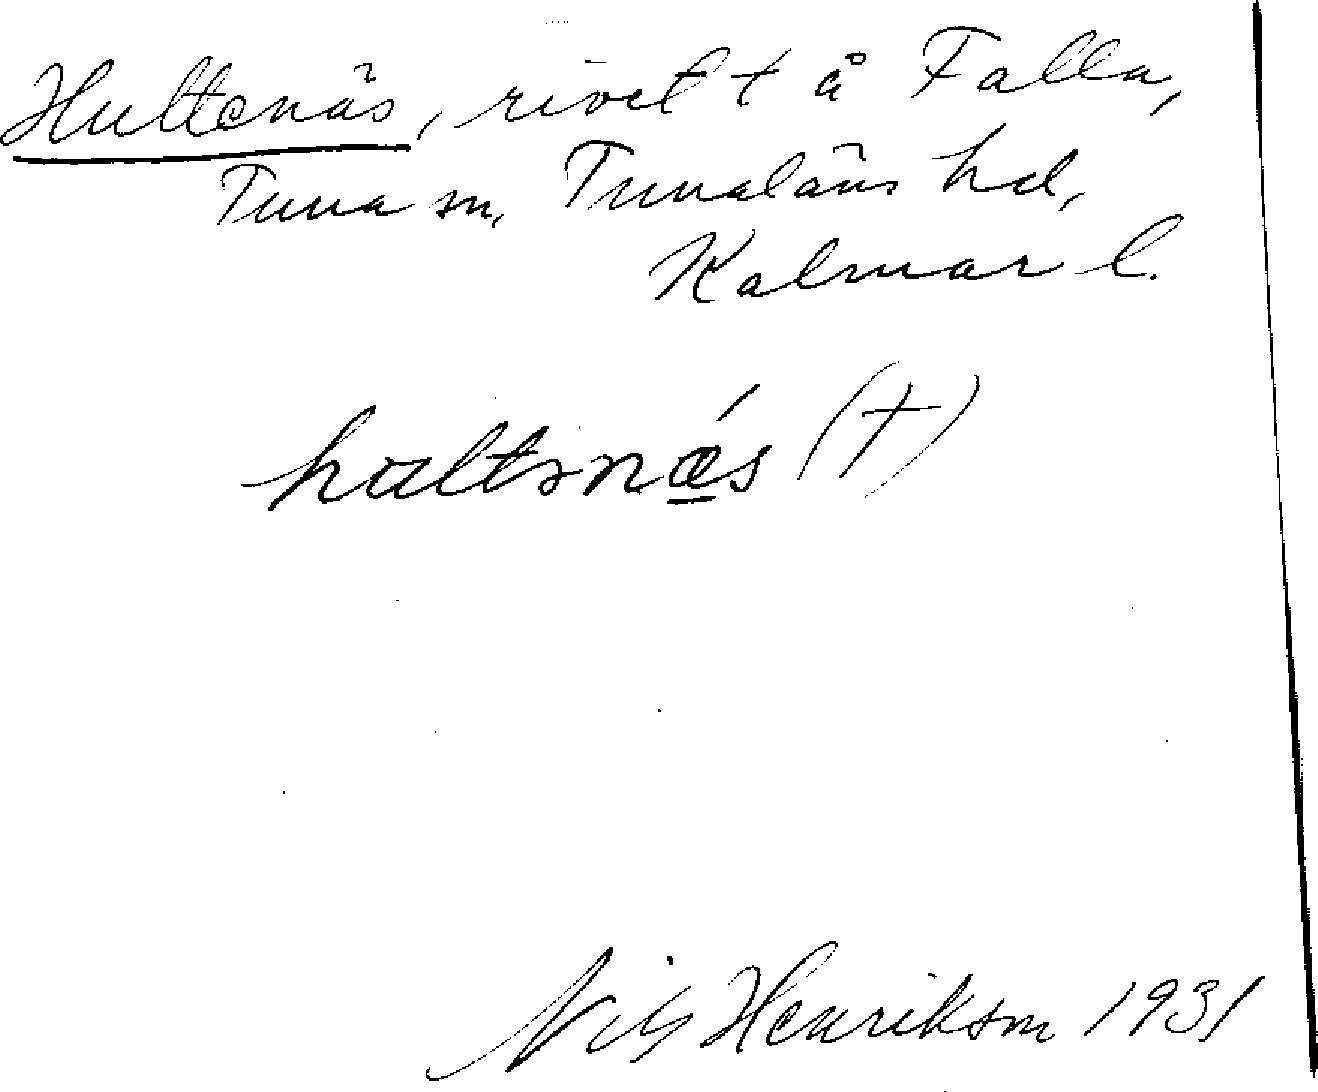 Hultenäs, rivet t å Falla,
Tuna sn, Tunaläns hd,
Kalmar l.
hultsnǽs (†)
Nils Henrikson 1931